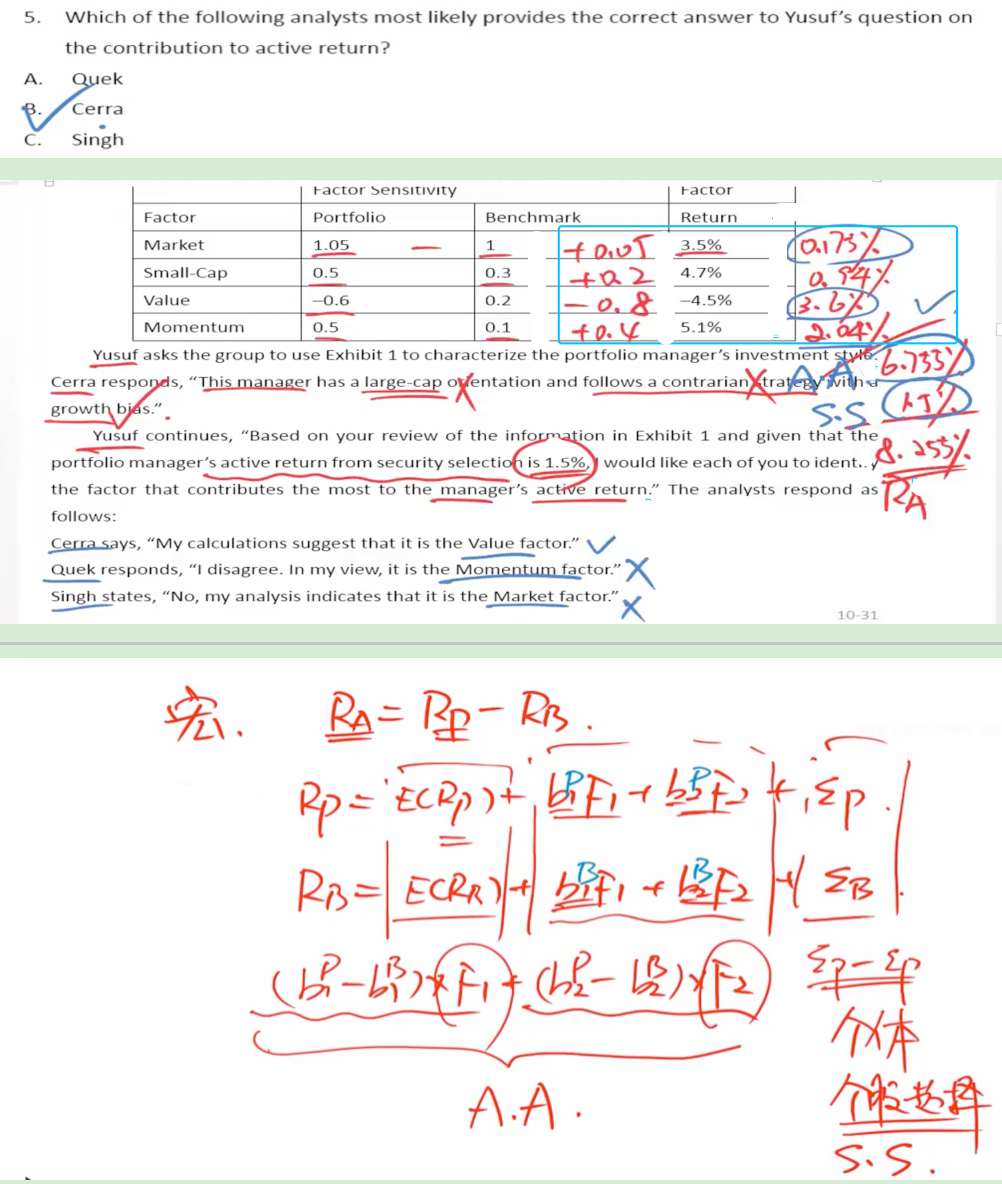 5. Which of the following analysts most likely provides the correct answer to Yusuf's question on
the contribution to active return?
A. Quek
B. Cerra
C. Singh
Factor Sensitivity Factor
Factor Portfolio Benchmark Return
Market 1.05 — 1 +0.05 3.5% 0.175%
Small-Cap 0.5 0.3 +0.2 4.7% 0.94%
Value –0.6 0.2 -0.8 –4.5% 3.6%
Momentum 0.5 0.1 +0.4 5.1% 2.04%
Yusuf asks the group to use Exhibit 1 to characterize the portfolio manager's investment style. 6.733%
Cerra responds, "This manager has a large-cap orientation and follows a contrarian strategy with a A A
growth bias." S.S 1.5%
Yusuf continues, "Based on your review of the information in Exhibit 1 and given that the
portfolio manager's active return from security selection is 1.5%, I would like each of you to ident.. y 8.255%
the factor that contributes the most to the manager's active return." The analysts respond as RA
follows:
Cerra says, "My calculations suggest that it is the Value factor."
Quek responds, "I disagree. In my view, it is the Momentum factor."
Singh states, "No, my analysis indicates that it is the Market factor."
10-31
宏. RA = RP - RB.
RP = E(RP) + b1P F1 + b2P F2 + εP.
RB = E(RB) + b1B F1 + b2B F2 + εB
(b1P - b1B) × F1 + (b2P - b2B) × F2 εP - εP
A.A.
个股选择
S.S.